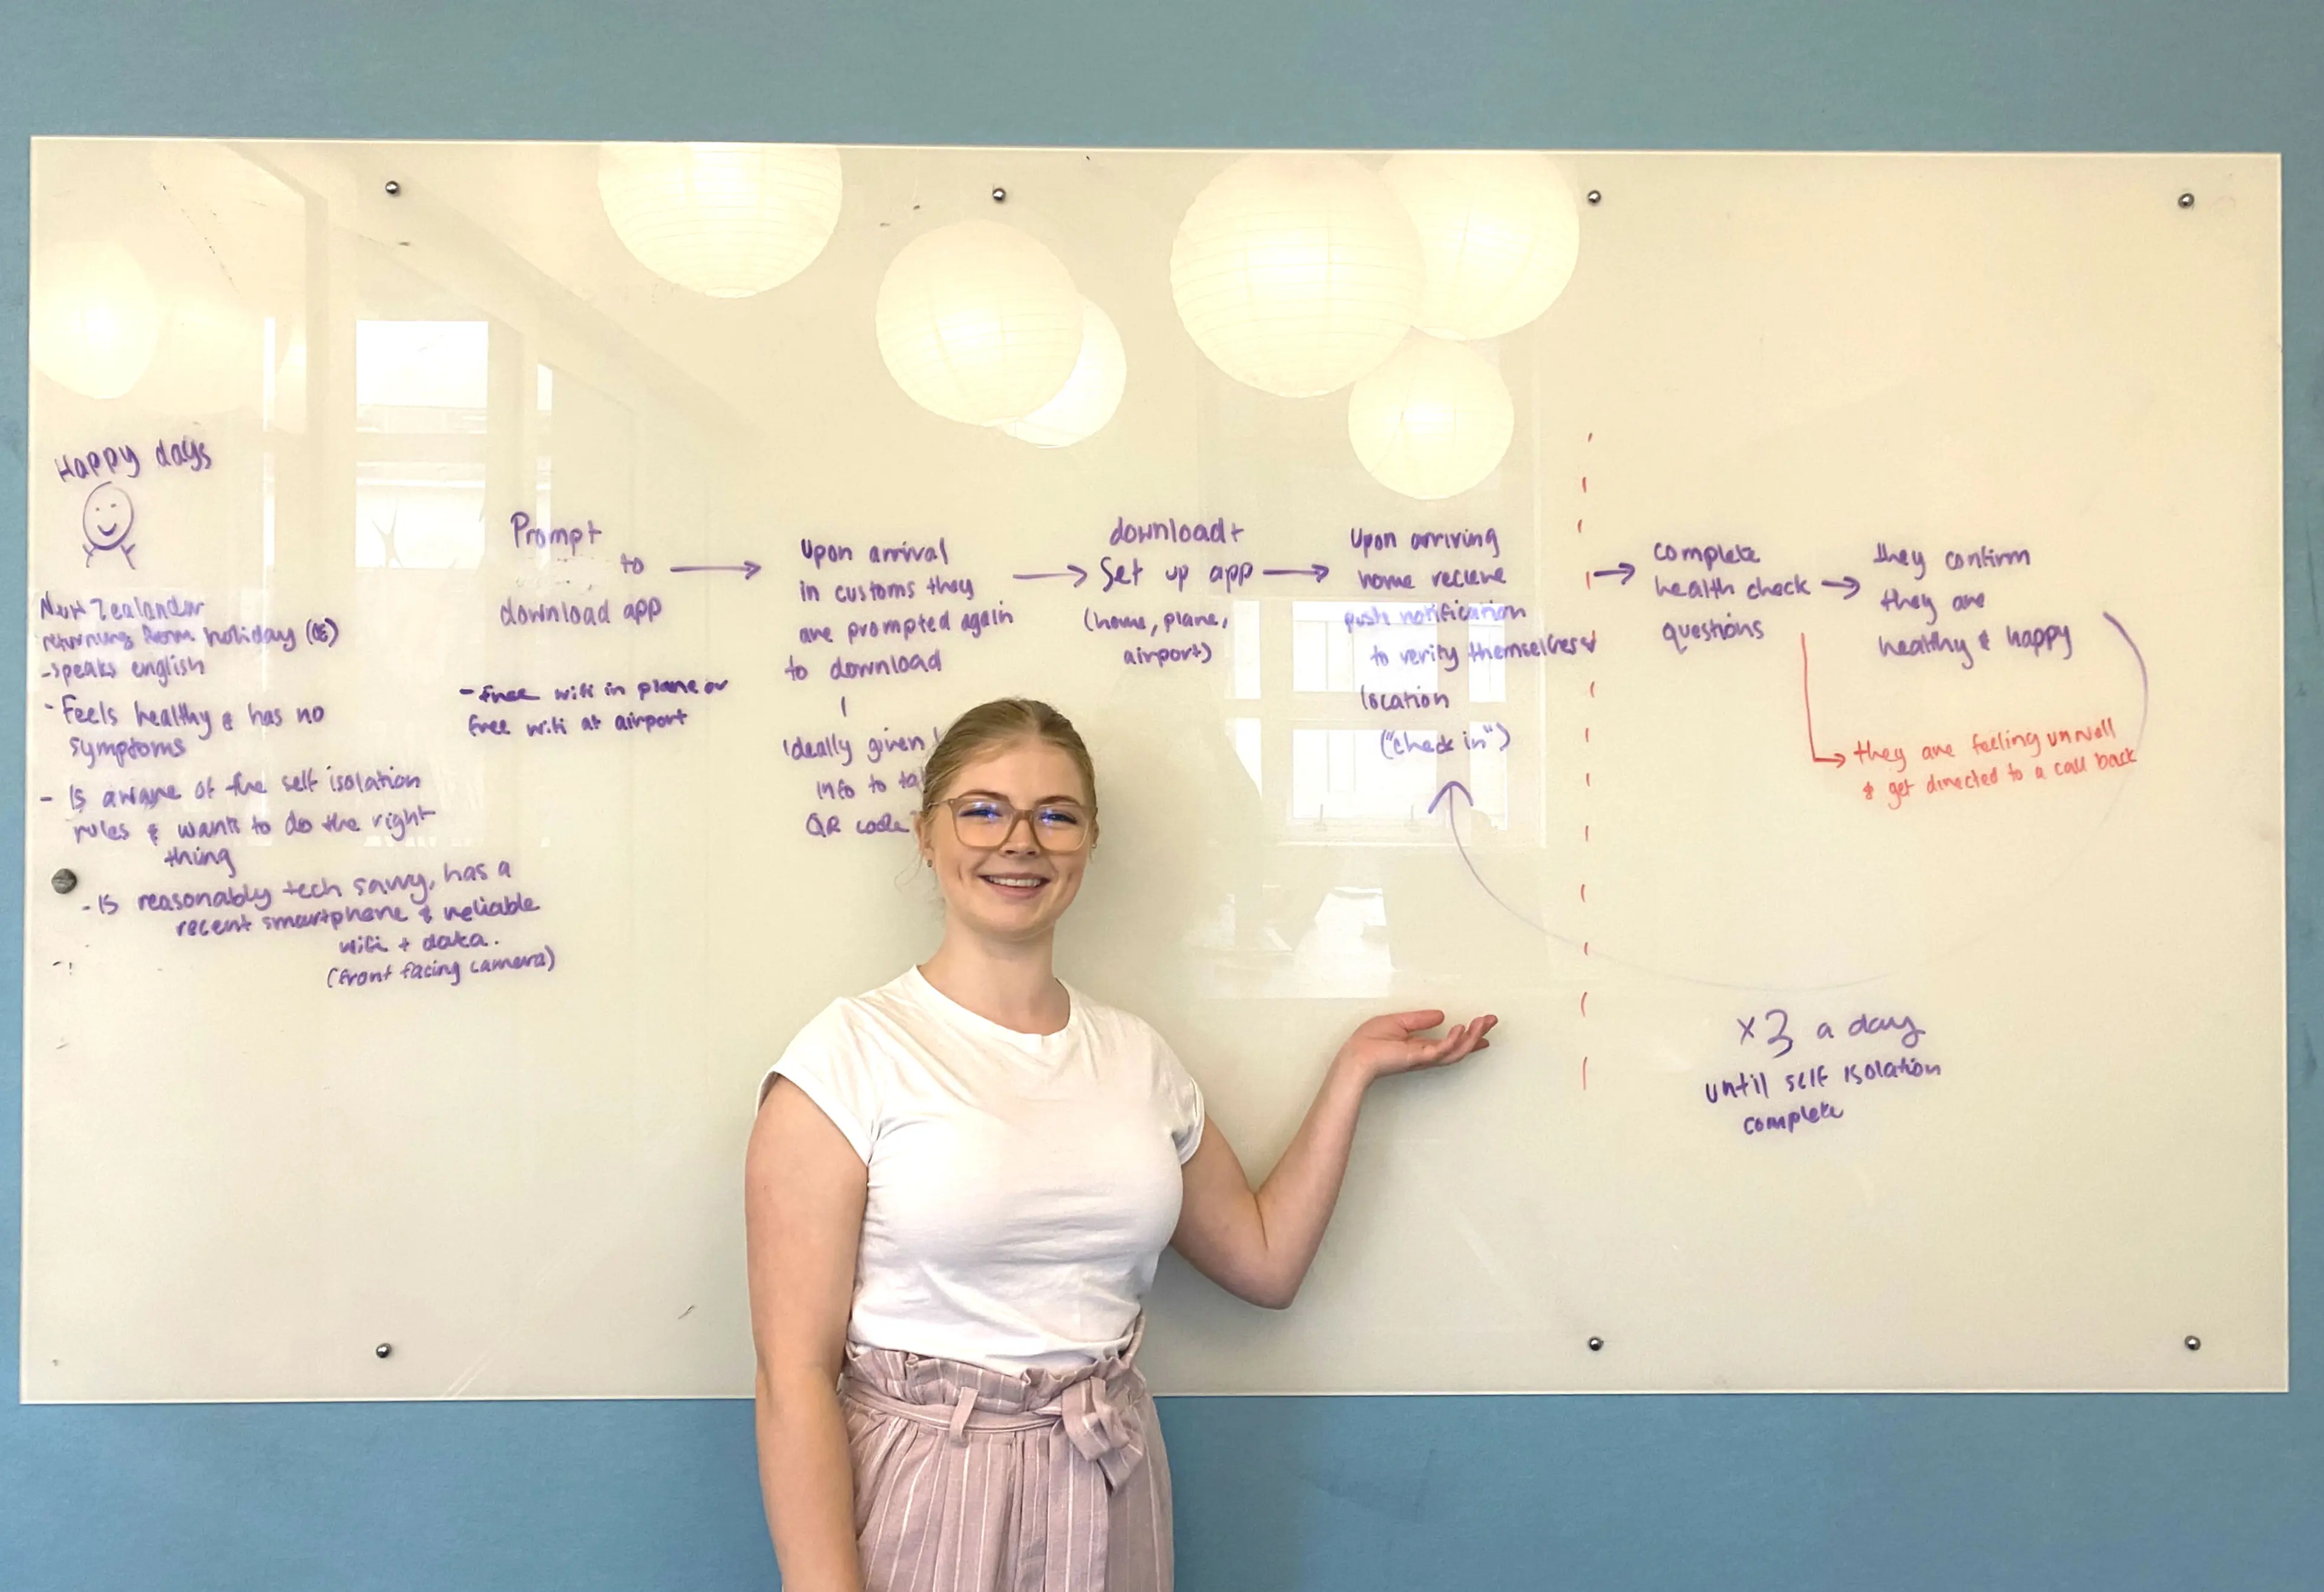 Happy days
New Zealander
returning from holiday
- speaks english
- Feels healthy & has no
symptoms
- Is aware of the self isolation
rules & wants to do the right
thing
- Is reasonably tech savvy, has a
recent smartphone & reliable
wifi + data.
(front facing camera)
Prompt
to
download app
- Free wifi in plane or
free wifi at airport
Upon arrival
in customs they
are prompted again
to download
Ideally given
info to
QR code
download +
Set up app
(home, plane,
airport)
Upon arriving
home recieve
push notification
to verify themselves &
location
("check in")
complete
health check
questions
they confirm
they are
healthy & happy
they are feeling unwell
& get directed to a call back
x3 a day
until self isolation
complete